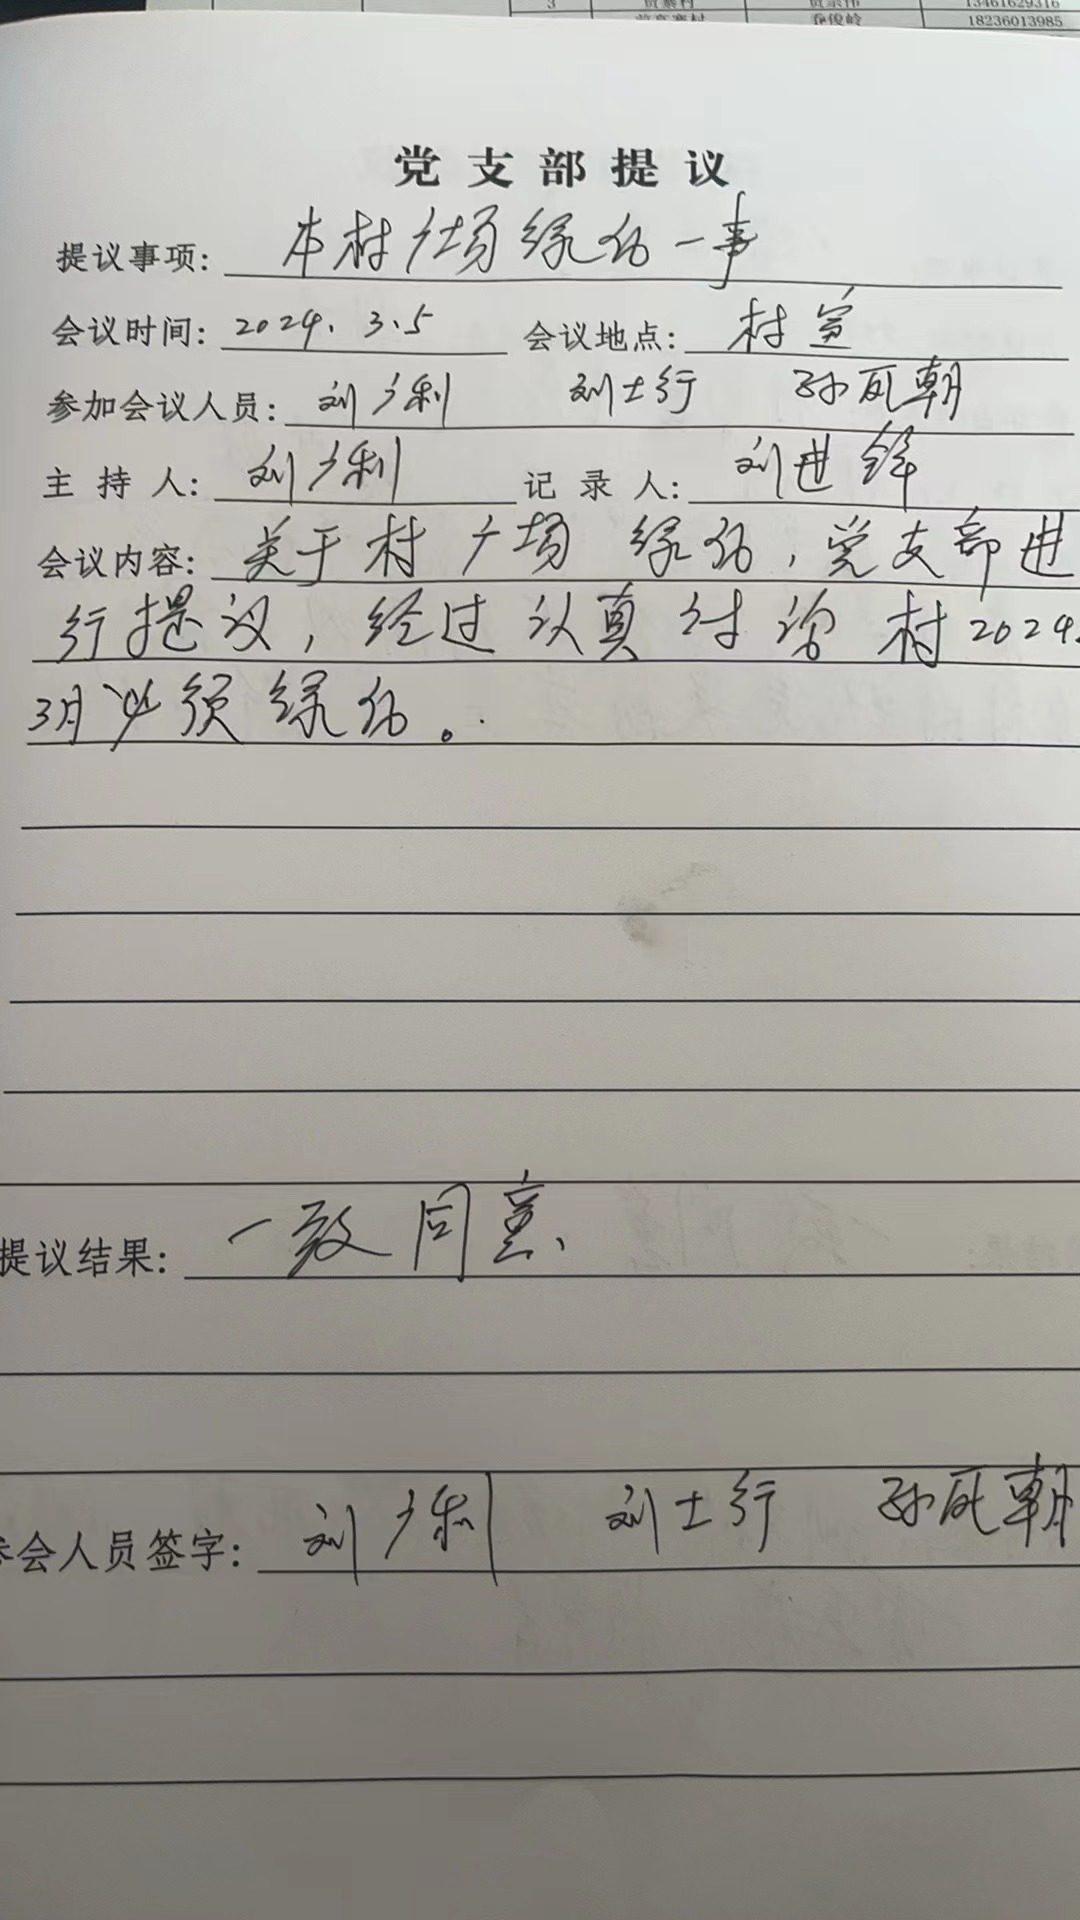 3 贾寨村 贾宗伟 13461629316
18236013985
党支部提议
提议事项: 本村广场绿化一事
会议时间: 2024.3.5 会议地点: 村室
参加会议人员: 刘广利 刘士行 孙瓦朝
主持人: 刘广利 记录人: 刘进锋
会议内容: 关于村广场绿化,党支部进
行提议,经过认真讨论村2024.
3月必须绿化。
提议结果: 一致同意
参会人员签字: 刘广利 刘士行 孙瓦朝